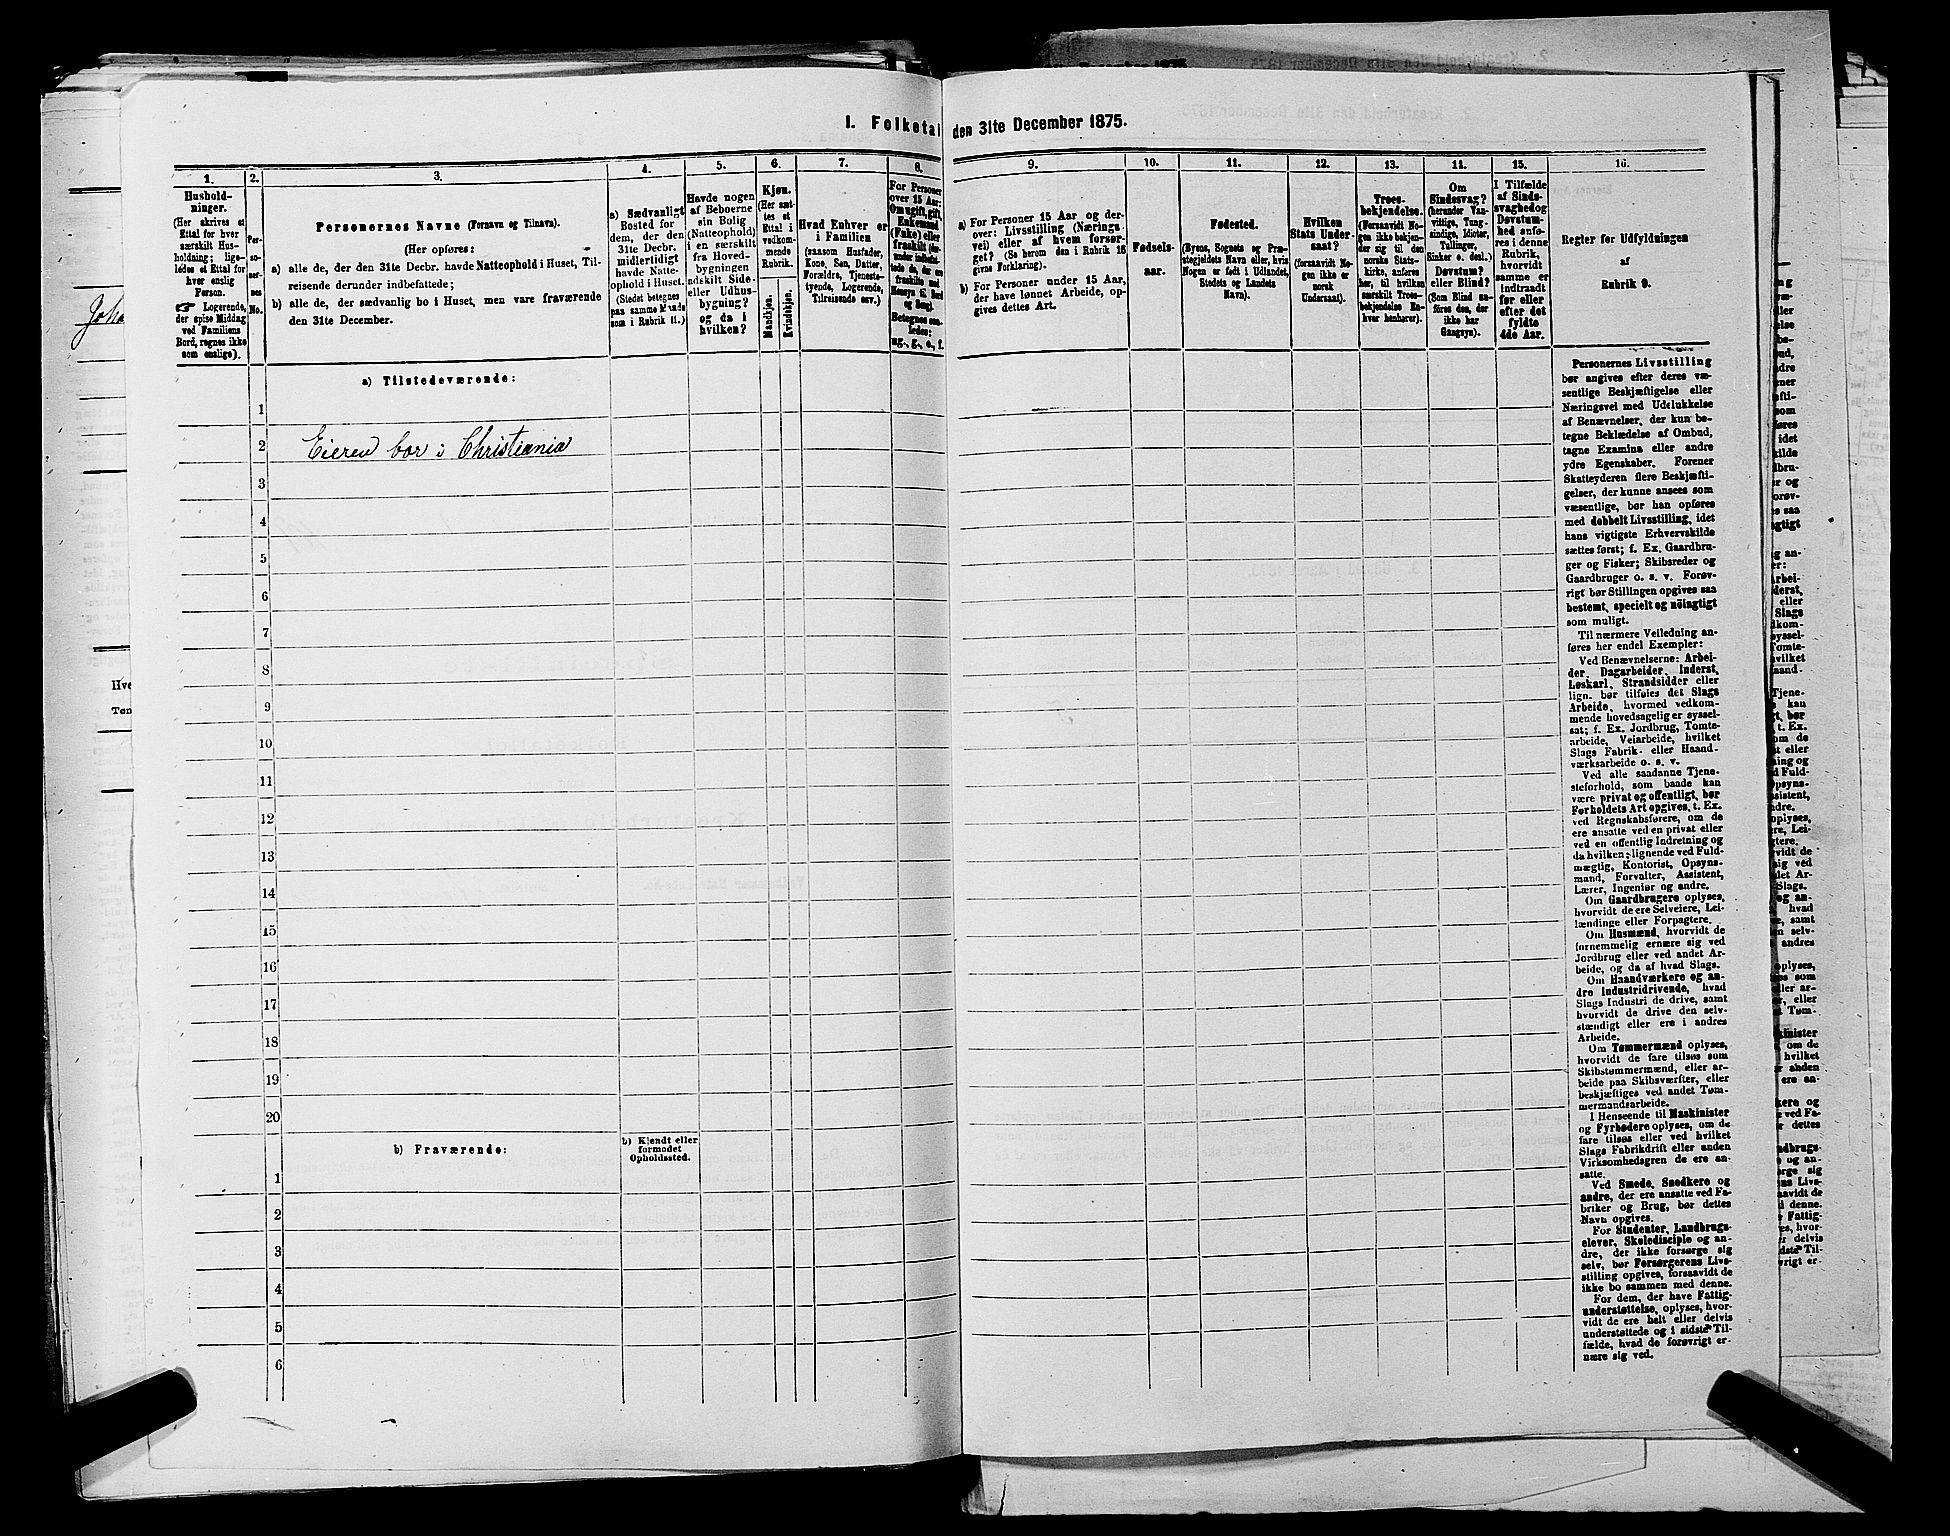 I. Folketal den 31te December 1875.
1.
2.
3.
4.
5.
6.
7.
8.
9.
10.
11.
12.
13.
14.
15.
16.
Hushold-
ninger.
(Her skrives et
Ettal for hver
særskilt Hus-
holdning; lige-
ledes et Ettal for
hver enslig
Person.
☛ Logerende,
der spise Middag
ved Familiens
Bord, regnes ikke
som enslige).
Per-
so-
ner-
nes
No.
Personernes Navne (Fornavn og Tilnavn).
(Her opføres:
a) alle de, der den 31te Decbr. havde Natteophold i Huset, Til-
reisende derunder indbefattede;
b) alle de, der sædvanlig bo i Huset, men vare fraværende
den 31te December.
a) Sædvanligt
Bosted for
dem, der den
31te Decbr.
midlertidigt
havde Natte-
ophold i Huset.
(Stedet betegnes
paa samme Maade
som i Rubrik 11.)
Havde nogen
af Beboerne
sin Bolig
(Natteophold)
i en særskilt
fra Hoved-
bygningen
adskilt Side-
eller Udhus-
bygning?
og da i
hvilken?
Kjøn.
(Her sæt-
tes et
Ettal i
vedkom-
mende
Rubrik.
Mandkjøn.
Kvindekjøn.
Hvad Enhver er
i Familien
(saasom Husfader,
Kone, Søn, Datter,
Forældre, Tjeneste-
tyende, Logerende,
Tilreisende osv.)
For Personer
over 15 Aar:
Om ugift, gift,
Enkemand
(Enke) eller
fraskilt
Betegnes saa-
ledes:
ug., g., e., f.
a) For Personer 15 Aar og der-
over: Livsstilling (Nærings-
vei) eller af hvem forsør-
get? (Se herom den i Rubrik 16
givne Forklaring).
b) For Personer under 15 Aar,
der have lønnet Arbeide, op-
gives dettes Art.
Fødsels-
aar.
Fødested.
(Byens, Sognets og Præ-
stegjeldets Navn eller, hvis
Nogen er født i Udlandet,
Stedets og Landets
Navn).
Hvilken
Stats Under-
saat?
(forsaavidt No-
gen ikke er
norsk
Undersaat).
Troes-
bekjendelse.
(Forsaavidt No-
gen ikke bekjen-
der sig til den
norske Stats-
kirke, anføres
her, til hvilken
særskilt Troes-
bekjendelse En-
hver henhører).
Om
Sindssvag?
(herunder Van-
vittige, Tung-
sindige, Idioter,
Tullinger,
Sinker o. desl.)
Døvstum?
eller Blind?
(Som Blind an-
føres den, der
ikke har
Gangsyn).
I Tilfælde
af Sinds-
svaghed og
Døvstum-
hed anfø-
res i denne
Rubrik,
hvorvidt
samme er
indtraadt
før eller
efter det
fyldte
4de Aar.
Regler for Udfyldningen
af
Rubrik 9.
a) Tilstedeværende:
1
2 Eieren bor i Christiania
3
4
5
6
7
8
9
10
11
12
13
14
15
16
17
18
19
20
b) Fraværende:
b) Kjendt eller
formodet
Opholdssted.
1
2
3
4
5
6
Personernes Livsstilling
bør angives efter deres væ-
sentlige Beskjæftigelse eller
Næringsvei med Udelukkelse
af Benævnelser, der kun be-
tegne Beklædelse af Ombud,
tagne Examina eller andre
ydre Egenskaber. Forener
Skatteyderen flere Beskjæfti-
gelser, der kunne ansees som
væsentlige, bør han opføres
med dobbelt Livsstilling, idet
hans vigtigste Erhvervskilde
sættes først; f. Ex. Gaardbru-
ger og Fisker; Skibsreder og
Gaardbruger o. s. v. Forøv-
rigt bør Stillingen opgives saa
bestemt, specielt og nöiagtigt
som muligt.
Til nærmere Veiledning an-
føres her endel Exempler:
Ved Benævnelserne: Arbei-
der, Dagarbeider, Inderst,
Løskarl, Strandsidder eller
lign. bør tilføies det Slags
Arbeide, hvormed vedkom-
mende hovedsagelig er syssel-
sat; f. Ex. Jordbrug, Tomte-
arbeide, Veiarbeide, hvilket
Slags Fabrik- eller Haand-
værksarbeide o. s. v.
Ved alle saadanne Tjene-
steforhold, som baade kan
være privat og offentligt, bør
Forholdets Art opgives, t. Ex.
ved Regnskabsførere, om de
ere ansatte ved en privat eller
ved en offentlig Indretning og
da hvilken; lignende ved Fuld-
mægtig, Kontorist, Opsyns-
mand, Forvalter, Assistent,
Lærer, Ingeniør og andre.
Om Gaardbrugere oplyses,
hvorvidt de ere Selveiere, Lei-
lændinge eller Forpagtere.
Om Husmænd, hvorvidt de
fornemmelig ernære sig ved
Jordbrug eller ved andet Ar-
beide, og da af hvad Slags.
Om Haandværkere og an-
dre Industridrivende, hvad
Slags Industri de drive, samt
hvorvidt de drive den selv-
stændigt eller ere i andres
Arbeide.
Om Tømmermænd oplyses,
hvorvidt de fare tilsøs som
Skibstømmermænd, eller ar-
beide paa Skibsværfter, eller
beskjæftiges ved andet Tøm-
mermandsarbeide.
I Henseende til Maskinister
og Fyrbødere oplyses, om de
fare tilsøs eller ved hvilket
Slags Fabrikdrift eller anden
Virksomhedsgren de ere an-
satte.
Ved Smede, Snedkere og
andre, der ere ansatte ved Fa-
briker og Brug, bør dettes
Navn opgives.
For Studenter, Landbrugs-
elever, Skoledisciple og an-
dre, der ikke forsørge sig
selv, bør Forsørgerens Livs-
stilling opgives, forsaavidt de
ikke bo sammen med denne.
For dem, der have Fattig-
understøttelse, oplyses, hvor-
vidt de ere helt eller delvis
understøttede og i sidste Til-
fælde, hvad de forøvrigt er-
nære sig ved.